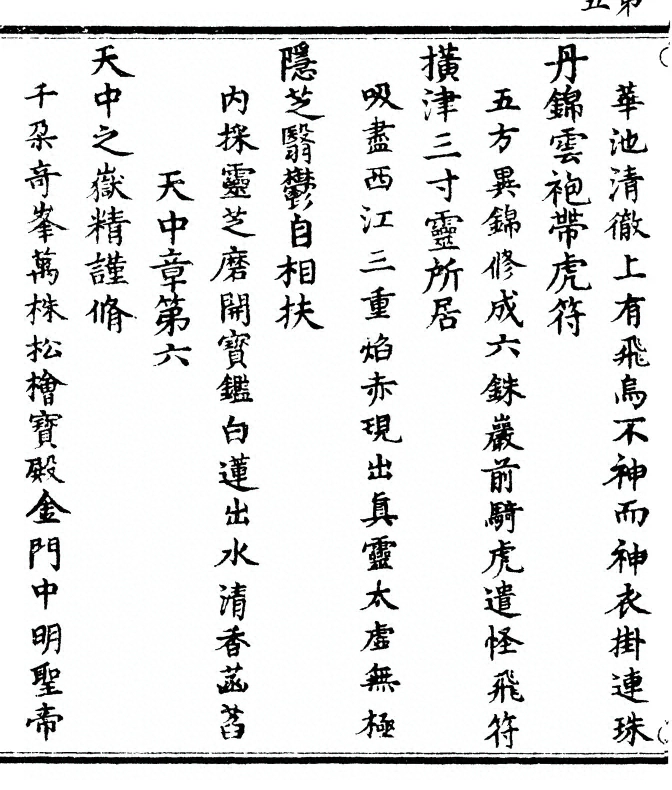 華池清徹上有飛烏不神而神衣掛連珠
丹錦雲袍帶虎符
五方異錦修成六銖巖前騎虎遣怪飛符
橫津三寸靈所居
吸盡西江三重焰赤現出真靈太虛無極
隱芝翳鬱自相扶
內採靈芝磨開寶鑑白蓮出水清香菡萏
天中章第六
天中之嶽精謹脩
千朶奇峯萬株松檜寶殿金門中明聖帝